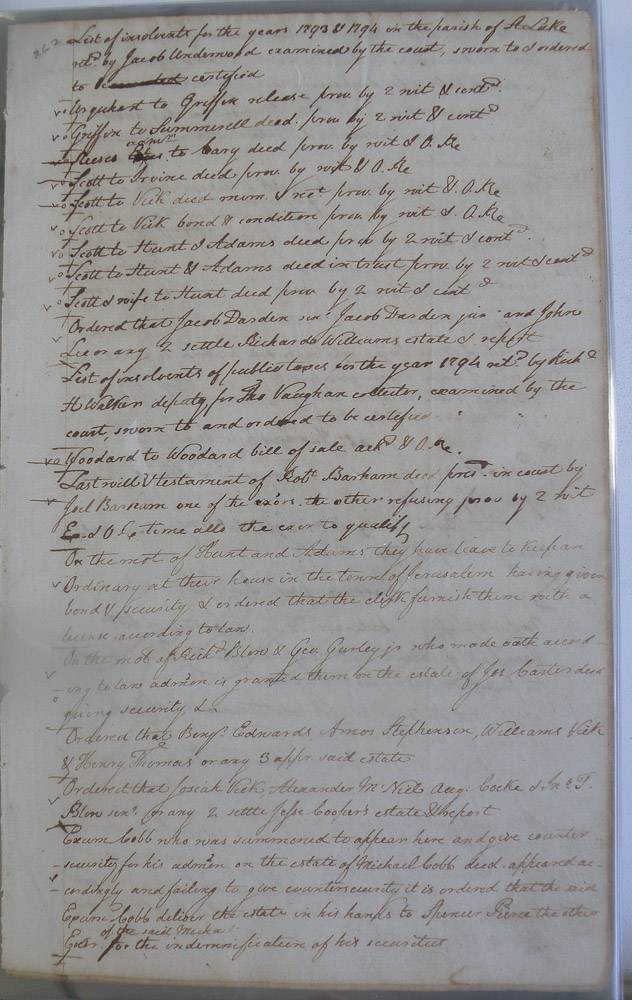 List of insolvents for the years 1793 & 1794 in the parish of St Luke
retd by Jacob Underwood examined by the court, sworn to & ordered
to be certified
Urquhart to Griffin release prov. by 2 wit & contd
Griffin to Summerell deed. prov. by 2 wit & contd
to Cary deed prov. by wit & O. Re
Scott to Irvine deed prov. by wit & O. Re
Scott to Vick deed mem. & rect prov. by wit & O. Re
Scott to Vick bond & condition prov. by wit & O. Re
Scott to Hunt & Adams deed prov by 2 wit & contd
Scott to Hunt & Adams deed in trust prov. by 2 wit & contd
Scott & wife to Hunt deed prov by 2 wit & contd
Ordered that Jacob Darden senr Jacob Darden junr and John
Lee or any 2 settle Richard Williams estate & report
List of insolvents of public taxes for the year 1794 retd by Richd
H Walker deputy for Tho Vaughan collector, examined by the
court, sworn to and ordered to be certified
Woodard to Woodard bill of sale ackd & O. Re.
Last will & testament of Robt Barham decd prest in court by
Joel Barham one of the exors. the other refusing prov by 2 wit
time allo the exor to qualify
On the mot of Hunt and Adams they have leave to keep an
Ordinary at their house in the town of Jerusalem having given
bond & security & ordered that the clerk furnish them with a
license according to law.
On the mot of Richd Blow & Geo Gurley jr who made oath accord
ing to law admon is granted them on the estate of Jos Carter decd
giving security &c
Ordered that Benjn Edwards Amos Stephenson, Williams Vick
& Henry Thomas or any 3 appr. said estate
Ordered that Josiah Vick Alexander McNeil Aug. Cocke & T.
Blow senr. or any 2 settle Jesse Cooper's estate & report
Exum Cobb who was summoned to appear here and give counter
security for his admon on the estate of Michael Cobb decd. appeared ac-
cordingly and failing to give countersecurity it is ordered that the said
Exum Cobb deliver the estate in his hands to Spencer Pierce the other
of the said Micha
Exor. for the indemnification of his securities